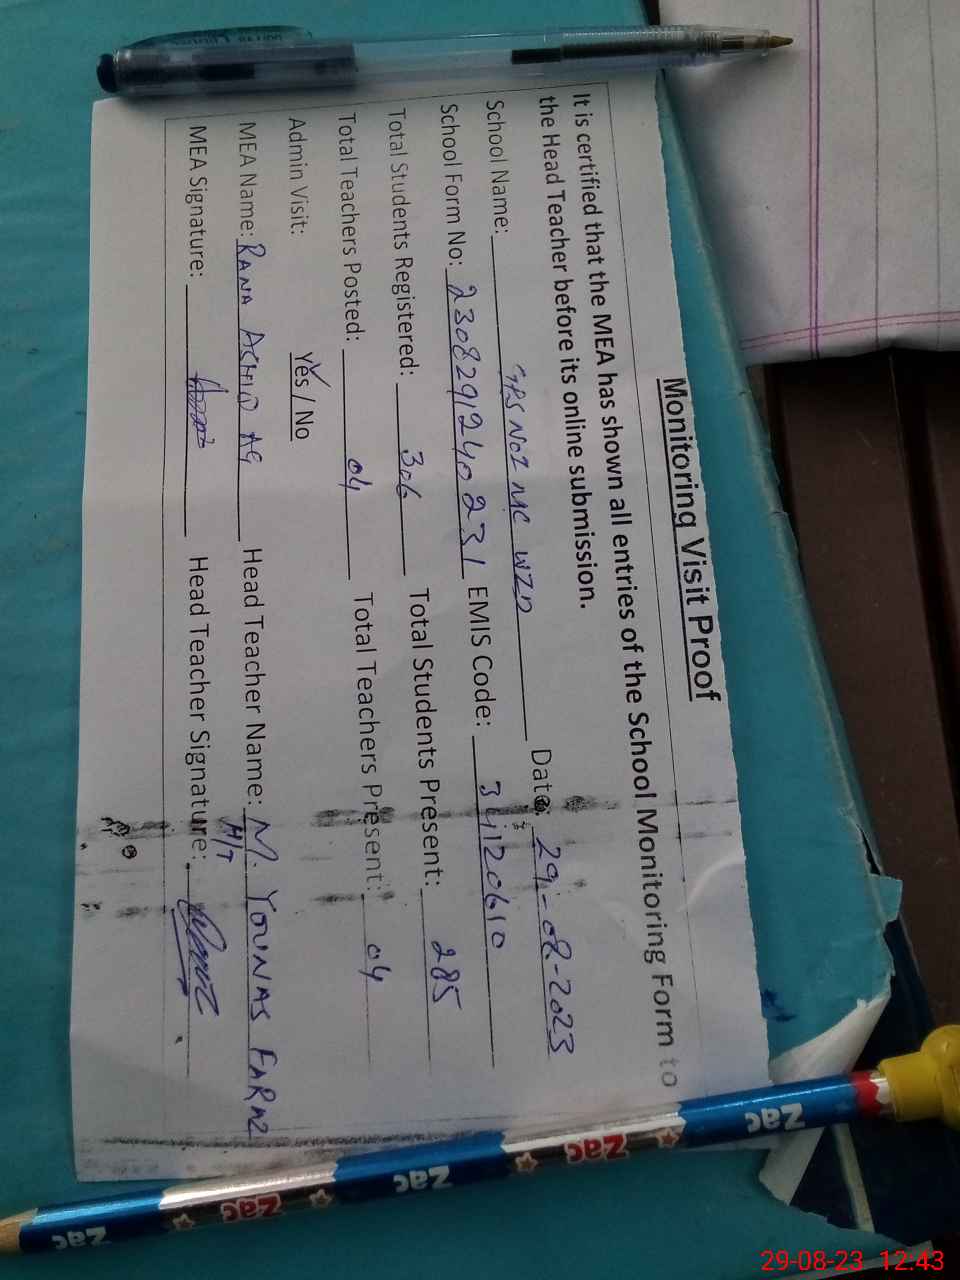 Monitoring Visit Proof
It is certified that the MEA has shown all entries of the School Monitoring Form to
the Head Teacher before its online submission.
School Name: GPS No2 MC WZD Date: 29-08-2023
School Form No: 2308291240231 EMIS Code: 34120610
Total Students Registered: 306 Total Students Present: 285
Total Teachers Posted: 04 Total Teachers Present: 04
Admin Visit: Yes / No
MEA Name: RANA Head Teacher Name: M. YOUNAS
MEA Signature: Head Teacher Signature:
H/T
Zac
Zac
Zac
Zac
Zac
29-08-23 12:43